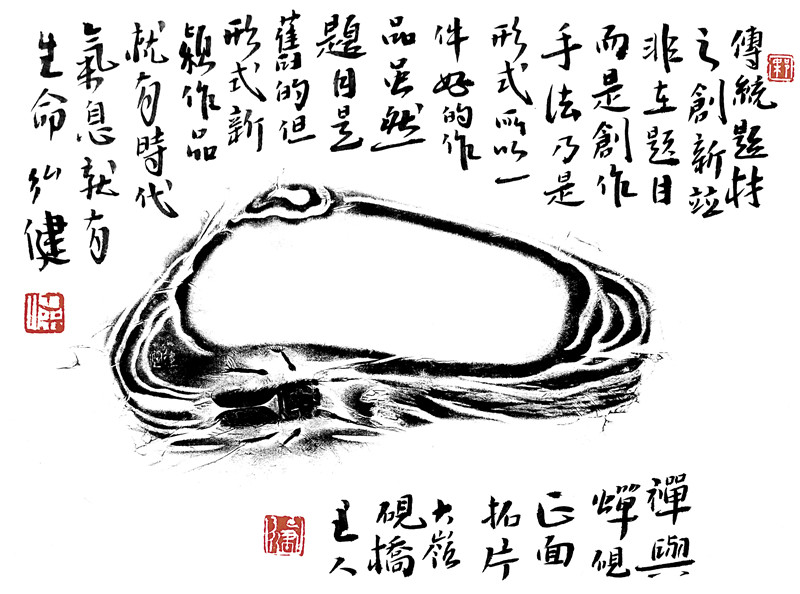 傳統題材
之創新竝
非在題目
而是創作
手法乃是
形式所以一
件好的作
品虽然
題目是
舊的但
形式新
穎作品
就有時代
氣息就有
生命 弘健
禪與
蟬硯
正面
拓片
大嶺
硯橋
主人